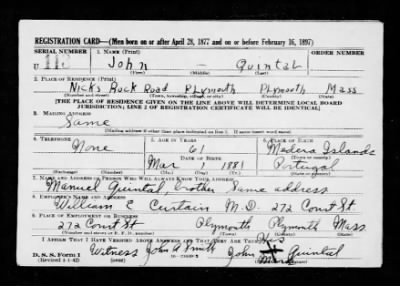 REGISTRATION CARD—(Men born on or after April 28, 1877 and on or before February 16, 1897)
SERIAL NUMBER 1. NAME (Print) ORDER NUMBER
U 113 John — Quintal
(First) (Middle) (Last)
2. PLACE OF RESIDENCE (Print)
Nicks Rock Road Plymouth Plymouth Mass
(Number and street) (Town, township, village, or city) (County) (State)
[THE PLACE OF RESIDENCE GIVEN ON THE LINE ABOVE WILL DETERMINE LOCAL BOARD
JURISDICTION; LINE 2 OF REGISTRATION CERTIFICATE WILL BE IDENTICAL]
3. MAILING ADDRESS
Same
(Mailing address if other than place indicated on line 2. If same insert word same)
4. TELEPHONE 5. AGE IN YEARS 6. PLACE OF BIRTH
None 61 Madera Islands
DATE OF BIRTH (Town or county)
Mar 1 1881 Portugal
(Exchange) (Number) (Mo.) (Day) (Yr.) (State or country)
7. NAME AND ADDRESS OF PERSON WHO WILL ALWAYS KNOW YOUR ADDRESS
Manuel Quintal, brother Same address
8. EMPLOYER'S NAME AND ADDRESS
William E Curtain M.D. 272 Court St
9. PLACE OF EMPLOYMENT OR BUSINESS
272 Court St Plymouth Plymouth Mass
(Number and street or R. F. D. number) (Town) (County) (State)
I AFFIRM THAT I HAVE VERIFIED ABOVE ANSWERS AND THAT THEY ARE TRUE.
His
D. S. S. Form 1 Witness John A Smith John X Quintal
(Revised 4-1-42) Mark